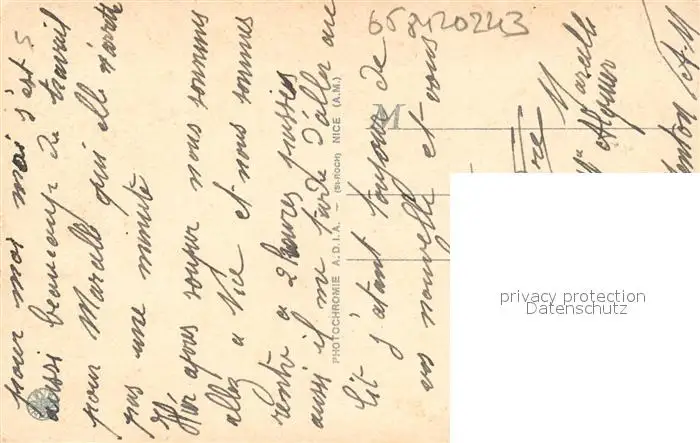 pour moi moi s'est 5
aussi beaucoup de travail
pour Marcelle qui elle n'arrete
pas une minute
Hier apres souper nous sommes
allez a Nice et nous sommes
rentre a 2 heures
aussi il me tarde d'aller au
lit j'atant toujours de
vos nouvelle et vous
PHOTOCHROMIE A.D.I.A. - (St-ROCH) NICE (A.M.)
M
Marcelle
658420243
privacy protection
Datenschutz